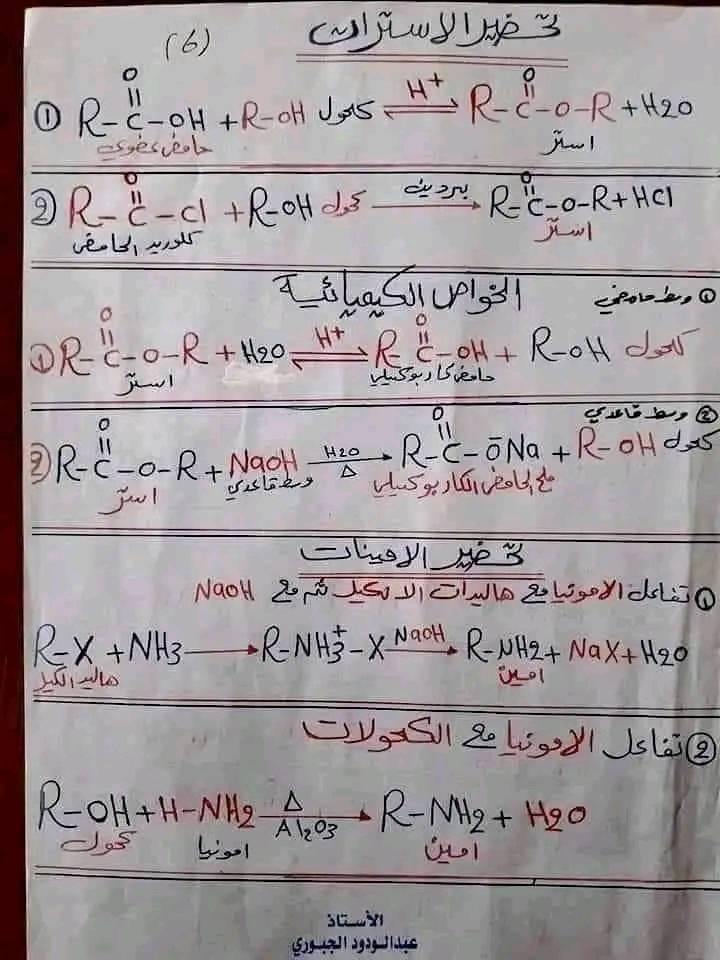 تحضير الاسترات
(6)
① R-C(=O)-OH + R-OH كحول ⇌ H+ R-C(=O)-O-R + H2O
حامض عضوي استر
2) R-C(=O)-Cl + R-OH كحول → بيردين R-C(=O)-O-R + HCl
كلوريد الحامض استر
الخواص الكيميائية
① وسط حامضي
① R-C(=O)-O-R + H2O ⇌ H+ R-C(=O)-OH + R-OH كحول
استر حامض كاربوكسيلي
② وسط قاعدي
2) R-C(=O)-O-R + NaOH → H2O Δ R-C(=O)-ŌNa + R-OH كحول
استر وسط قاعدي ملح الحامض الكاربوكسيلي
تحضير الامينات
① تفاعل الامونيا مع هاليدات الالكيل ثم مع NaOH
R-X + NH3 → R-NH3+-X → NaOH R-NH2 + NaX + H2O
هاليد الكيل امين
② تفاعل الامونيا مع الكحولات
R-OH + H-NH2 → Δ Al2O3 R-NH2 + H2O
كحول امونيا امين
الأستاذ
عبدالودود الجبوري